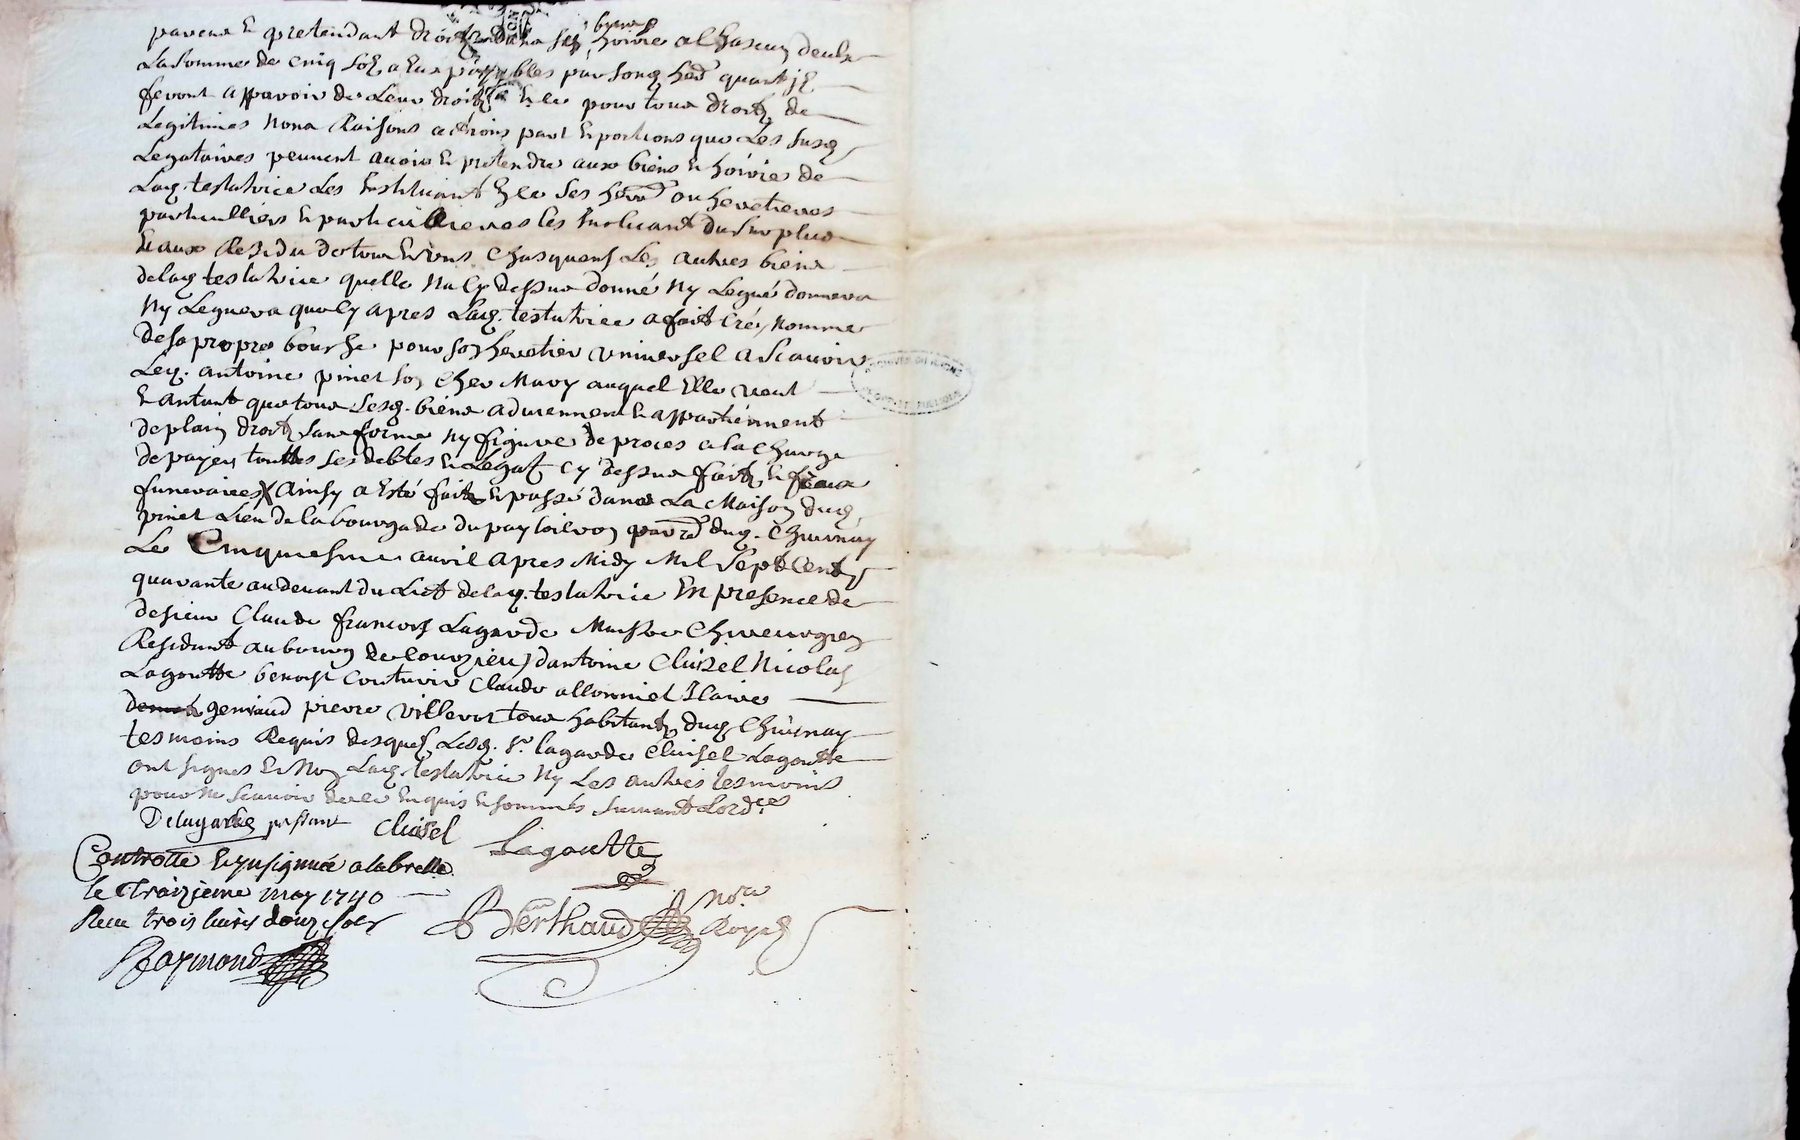 parens et pretendant droit dans ses biens hoirie a Chascun deulx
La somme de cinq solz a eux payables par song her. quant jl
feront apparoir de Leur droitz et ce pour tous droitz de
Legitimes noms Raisons actions part et portions que Les susd
Legataires peuvent auoir et pretendre aux biens et hoirie de
Lad. testatrice Les Instituant ses her. ou heretieres
particulliers et particullieres les Excluant du surplus
Et aux Residu de tous Et uns Chasquens Les autres biens
de lad testatrice quelle na Cy dessus donné ny Legué donnera
ny Leguera que Cy apres Lad. testatrice a fait Créé, nommé
de sa propre bouche pour son heretier vniuersel a Scauoir
Led. antoine pinet son cher Mary auquel Elle veut
Et antant que tous Lesd. biens aduiennent et appartiennent
de plain droit sans forme ny figure de proces a la charge
de payer touttes ses debtes et Legat cy dessus faitz et fraix
funeraires Ainsy a esté fait et passé dans La Maison dud.
pinet Lieu de la bourgade du pay parr. dud. Cheuinay
Le Cinquiesme auril apres Midy Mil Sept Centz
quarante au deuant du Lict de lad. testatrice En presence de
de sieur Claude francois Lagarde Maistre Chireurgien
Residant au bourg de Courzieu, d'antoine Clusel Nicolas
Lagoutte benoist Couturier Claude allonniel Ilaire
genraud pierre Villerot tous habitantz dud. Cheuinay
tesmoins Requis desquelz Lesd. Sr. lagarde Clusel Lagoutte
ont signes Et Non Lad. testatrice ny Les autres tesmoins
pour ne Scauoir de ce Enquis et sommés suivant Lord.ces
Delagarde present Clusel
Lagoutte
Controllé et ynsignué a labrelle
le Traizieme may 1740
Receu trois livres douz sols
Berthaud No.re Royal
Raymond